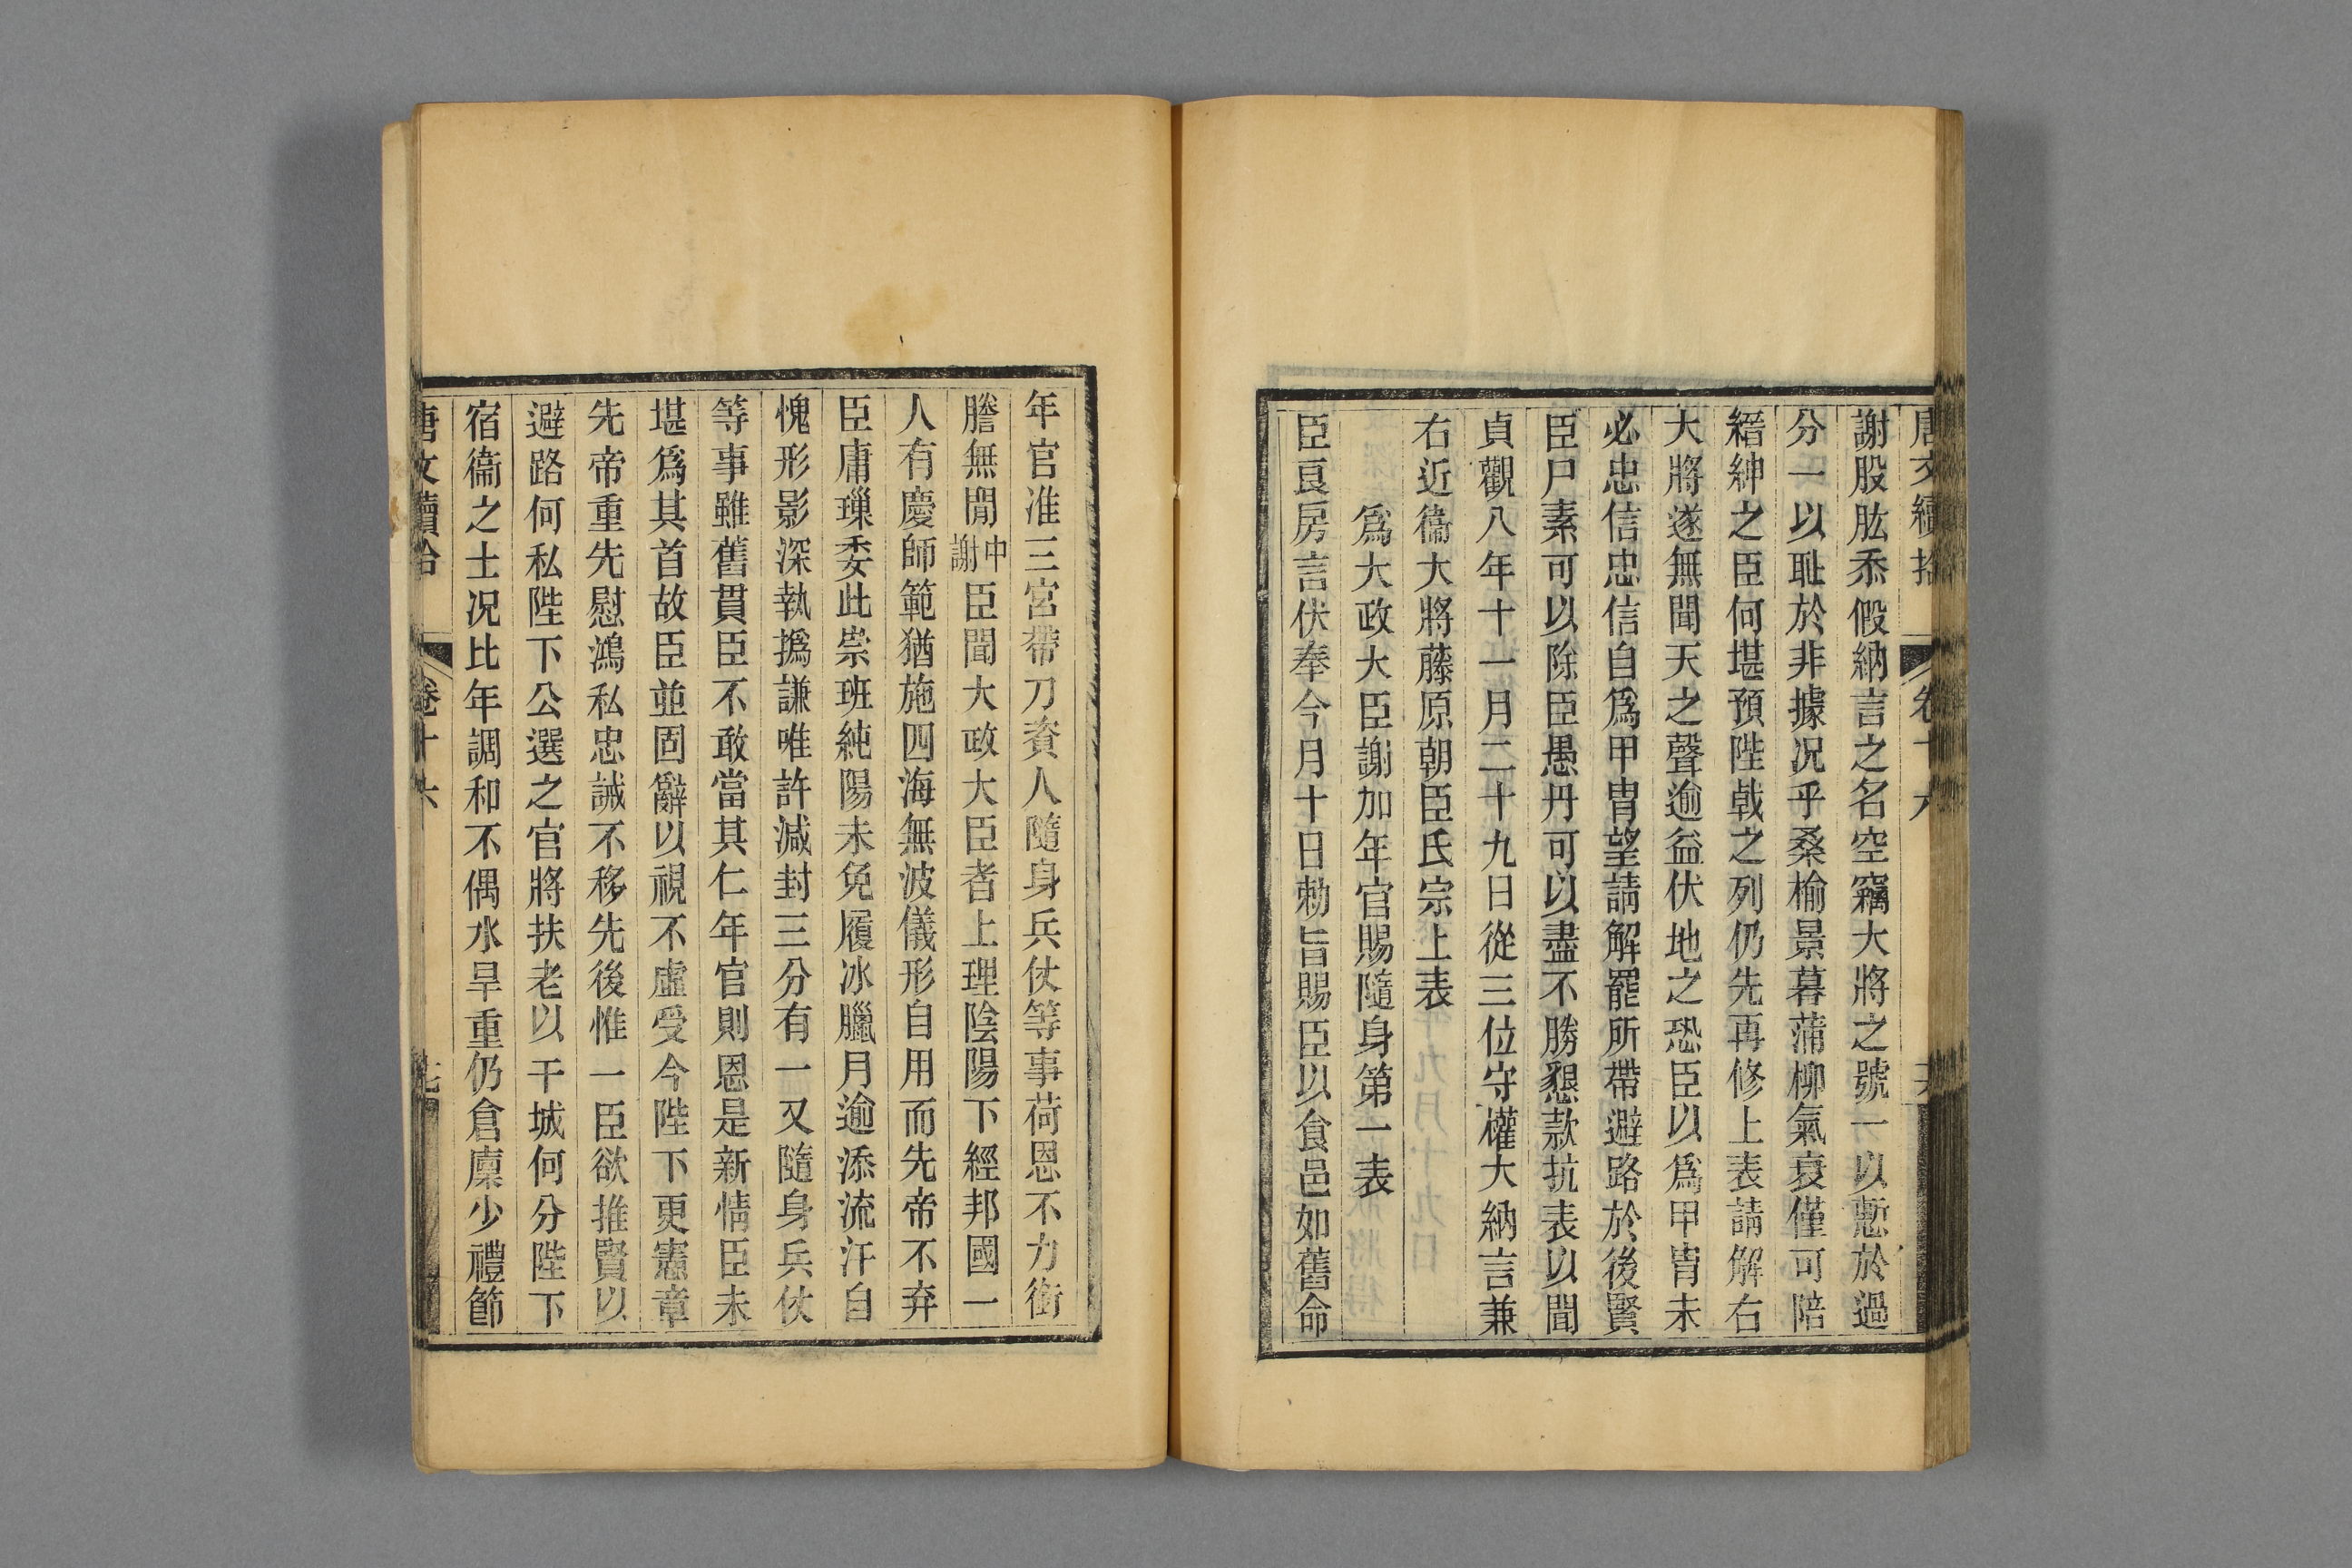 唐文續拾 卷十六 六
謝股肱忝假納言之名空竊大將之號一以慙於過
分一以耻於非據况乎桑榆景暮蒲柳氣衰僅可陪
縉紳之臣何堪預陛戟之列仍先再修上表請解右
大將遂無聞天之聲逾益伏地之恐臣以爲甲胄未
必忠信忠信自爲甲胄望請解罷所帶避路於後賢
臣尸素可以除臣愚丹可以盡不勝懇款抗表以聞
貞觀八年十一月二十九日從三位守權大納言兼
右近衞大將藤原朝臣氏宗上表
爲大政大臣謝加年官賜隨身第一表
臣良房言伏奉今月十日勅旨賜臣以食邑如舊命
年官准三宮帶刀資人隨身兵仗等事荷恩不力銜
膽無閒中謝臣聞大政大臣者上理陰陽下經邦國一
人有慶師範猶施四海無波儀形自用而先帝不弃
臣庸璅委此崇班純陽未免履冰臘月逾添流汗自
愧形影深執撝謙唯許減封三分有一又隨身兵仗
等事雖舊貫臣不敢當其仁年官則恩是新情臣未
堪爲其首故臣並固辭以視不虛受今陛下更憲章
先帝重先慰鴻私忠誠不移先後惟一臣欲推賢以
避路何私陛下公選之官將扶老以干城何分陛下
宿衞之士况比年調和不偶水旱重仍倉廩少禮節
唐文續拾 卷十六 七